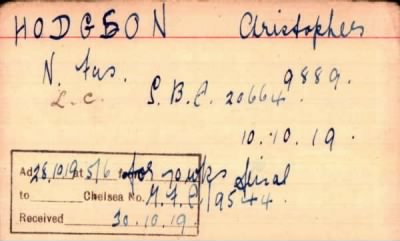 HODGSON Christopher
N. Fus. 9889.
L.C. S.B.C. 20664.
10.10.19.
Ad 28.10.19 at 5/6 for 70 wks final
to Chelsea No. 9544.
Received 30.10.19